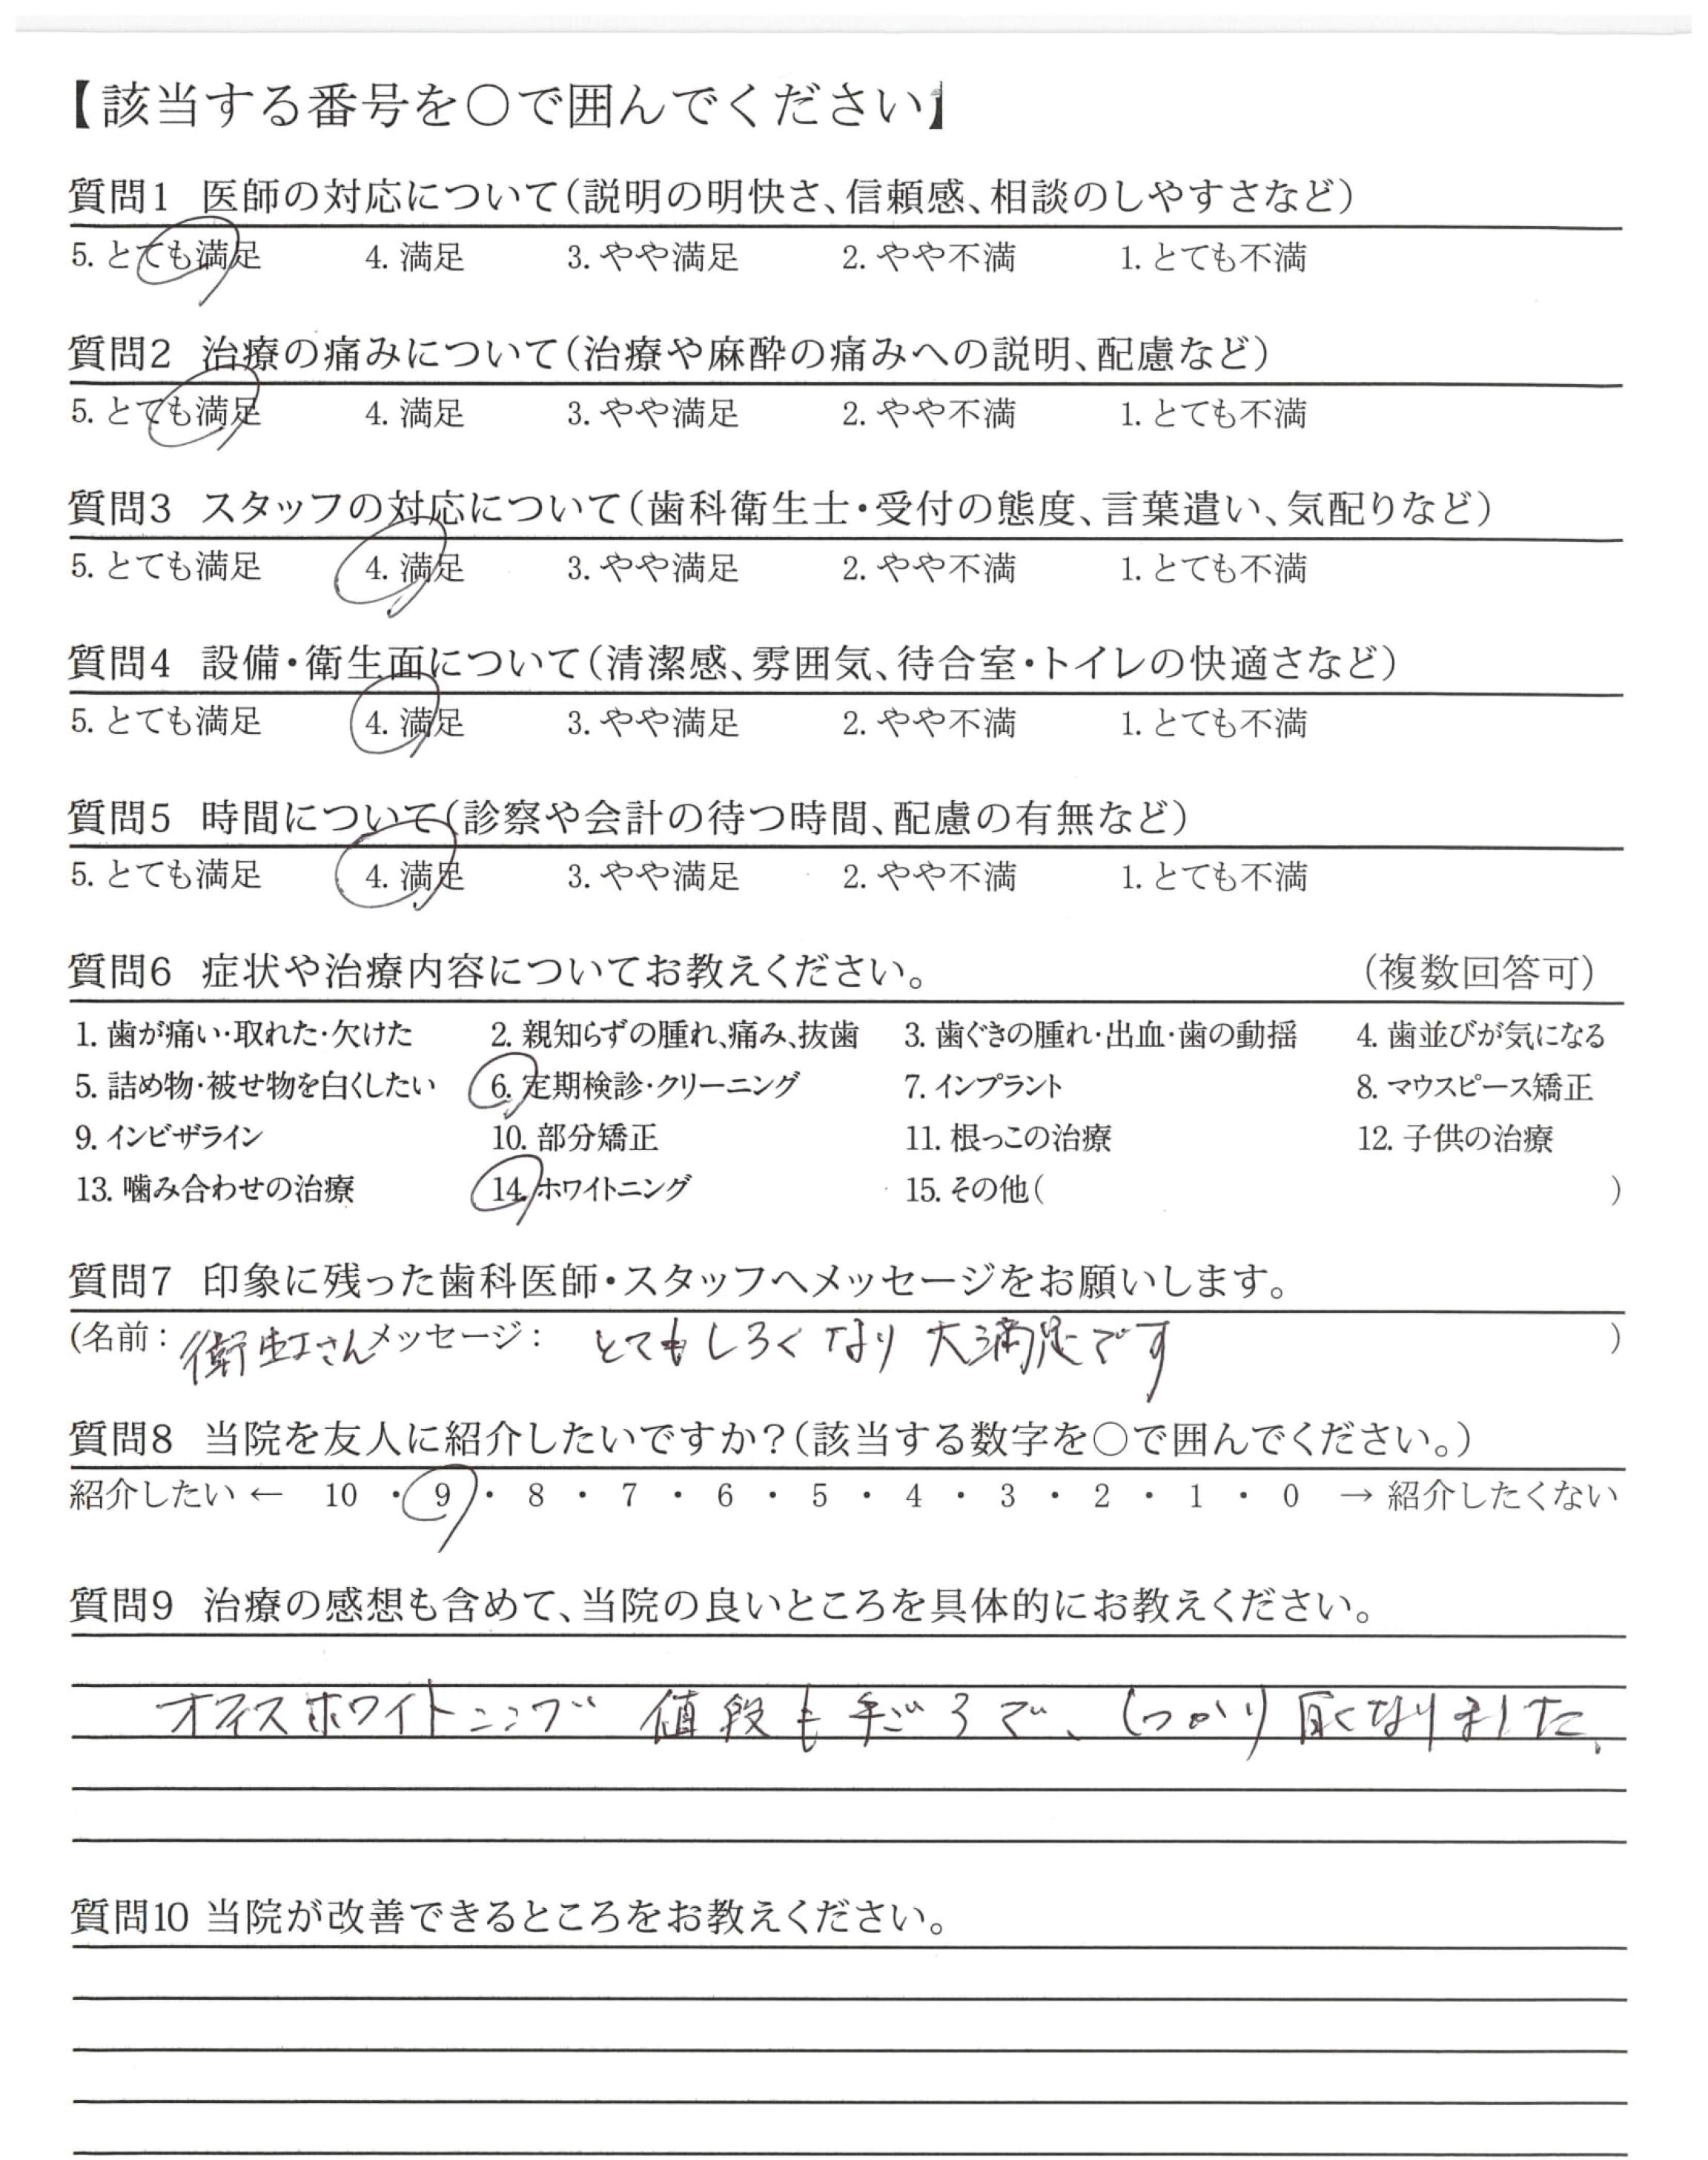 【該当する番号を○で囲んでください】
質問1 医師の対応について(説明の明快さ、信頼感、相談のしやすさなど)
5. とても満足 4. 満足 3. やや満足 2. やや不満 1. とても不満
質問2 治療の痛みについて(治療や麻酔の痛みへの説明、配慮など)
5. とても満足 4. 満足 3. やや満足 2. やや不満 1. とても不満
質問3 スタッフの対応について(歯科衛生士・受付の態度、言葉遣い、気配りなど)
5. とても満足 4. 満足 3. やや満足 2. やや不満 1. とても不満
質問4 設備・衛生面について(清潔感、雰囲気、待合室・トイレの快適さなど)
5. とても満足 4. 満足 3. やや満足 2. やや不満 1. とても不満
質問5 時間について(診察や会計の待つ時間、配慮の有無など)
5. とても満足 4. 満足 3. やや満足 2. やや不満 1. とても不満
質問6 症状や治療内容についてお教えください。 (複数回答可)
1. 歯が痛い・取れた・欠けた 2. 親知らずの腫れ、痛み、抜歯 3. 歯ぐきの腫れ・出血・歯の動揺 4. 歯並びが気になる
5. 詰め物・被せ物を白くしたい 6. 定期検診・クリーニング 7. インプラント 8. マウスピース矯正
9. インビザライン 10. 部分矯正 11. 根っこの治療 12. 子供の治療
13. 噛み合わせの治療 14. ホワイトニング 15. その他( )
質問7 印象に残った歯科医師・スタッフへメッセージをお願いします。
(名前: 衛生士さん メッセージ: とてもしろくなり 大満足です )
質問8 当院を友人に紹介したいですか?(該当する数字を○で囲んでください。)
紹介したい ← 10 ・ 9 ・ 8 ・ 7 ・ 6 ・ 5 ・ 4 ・ 3 ・ 2 ・ 1 ・ 0 → 紹介したくない
質問9 治療の感想も含めて、当院の良いところを具体的にお教えください。
オフィスホワイトニング 値段も手ごろで、しっかり白くなりました。
質問10 当院が改善できるところをお教えください。